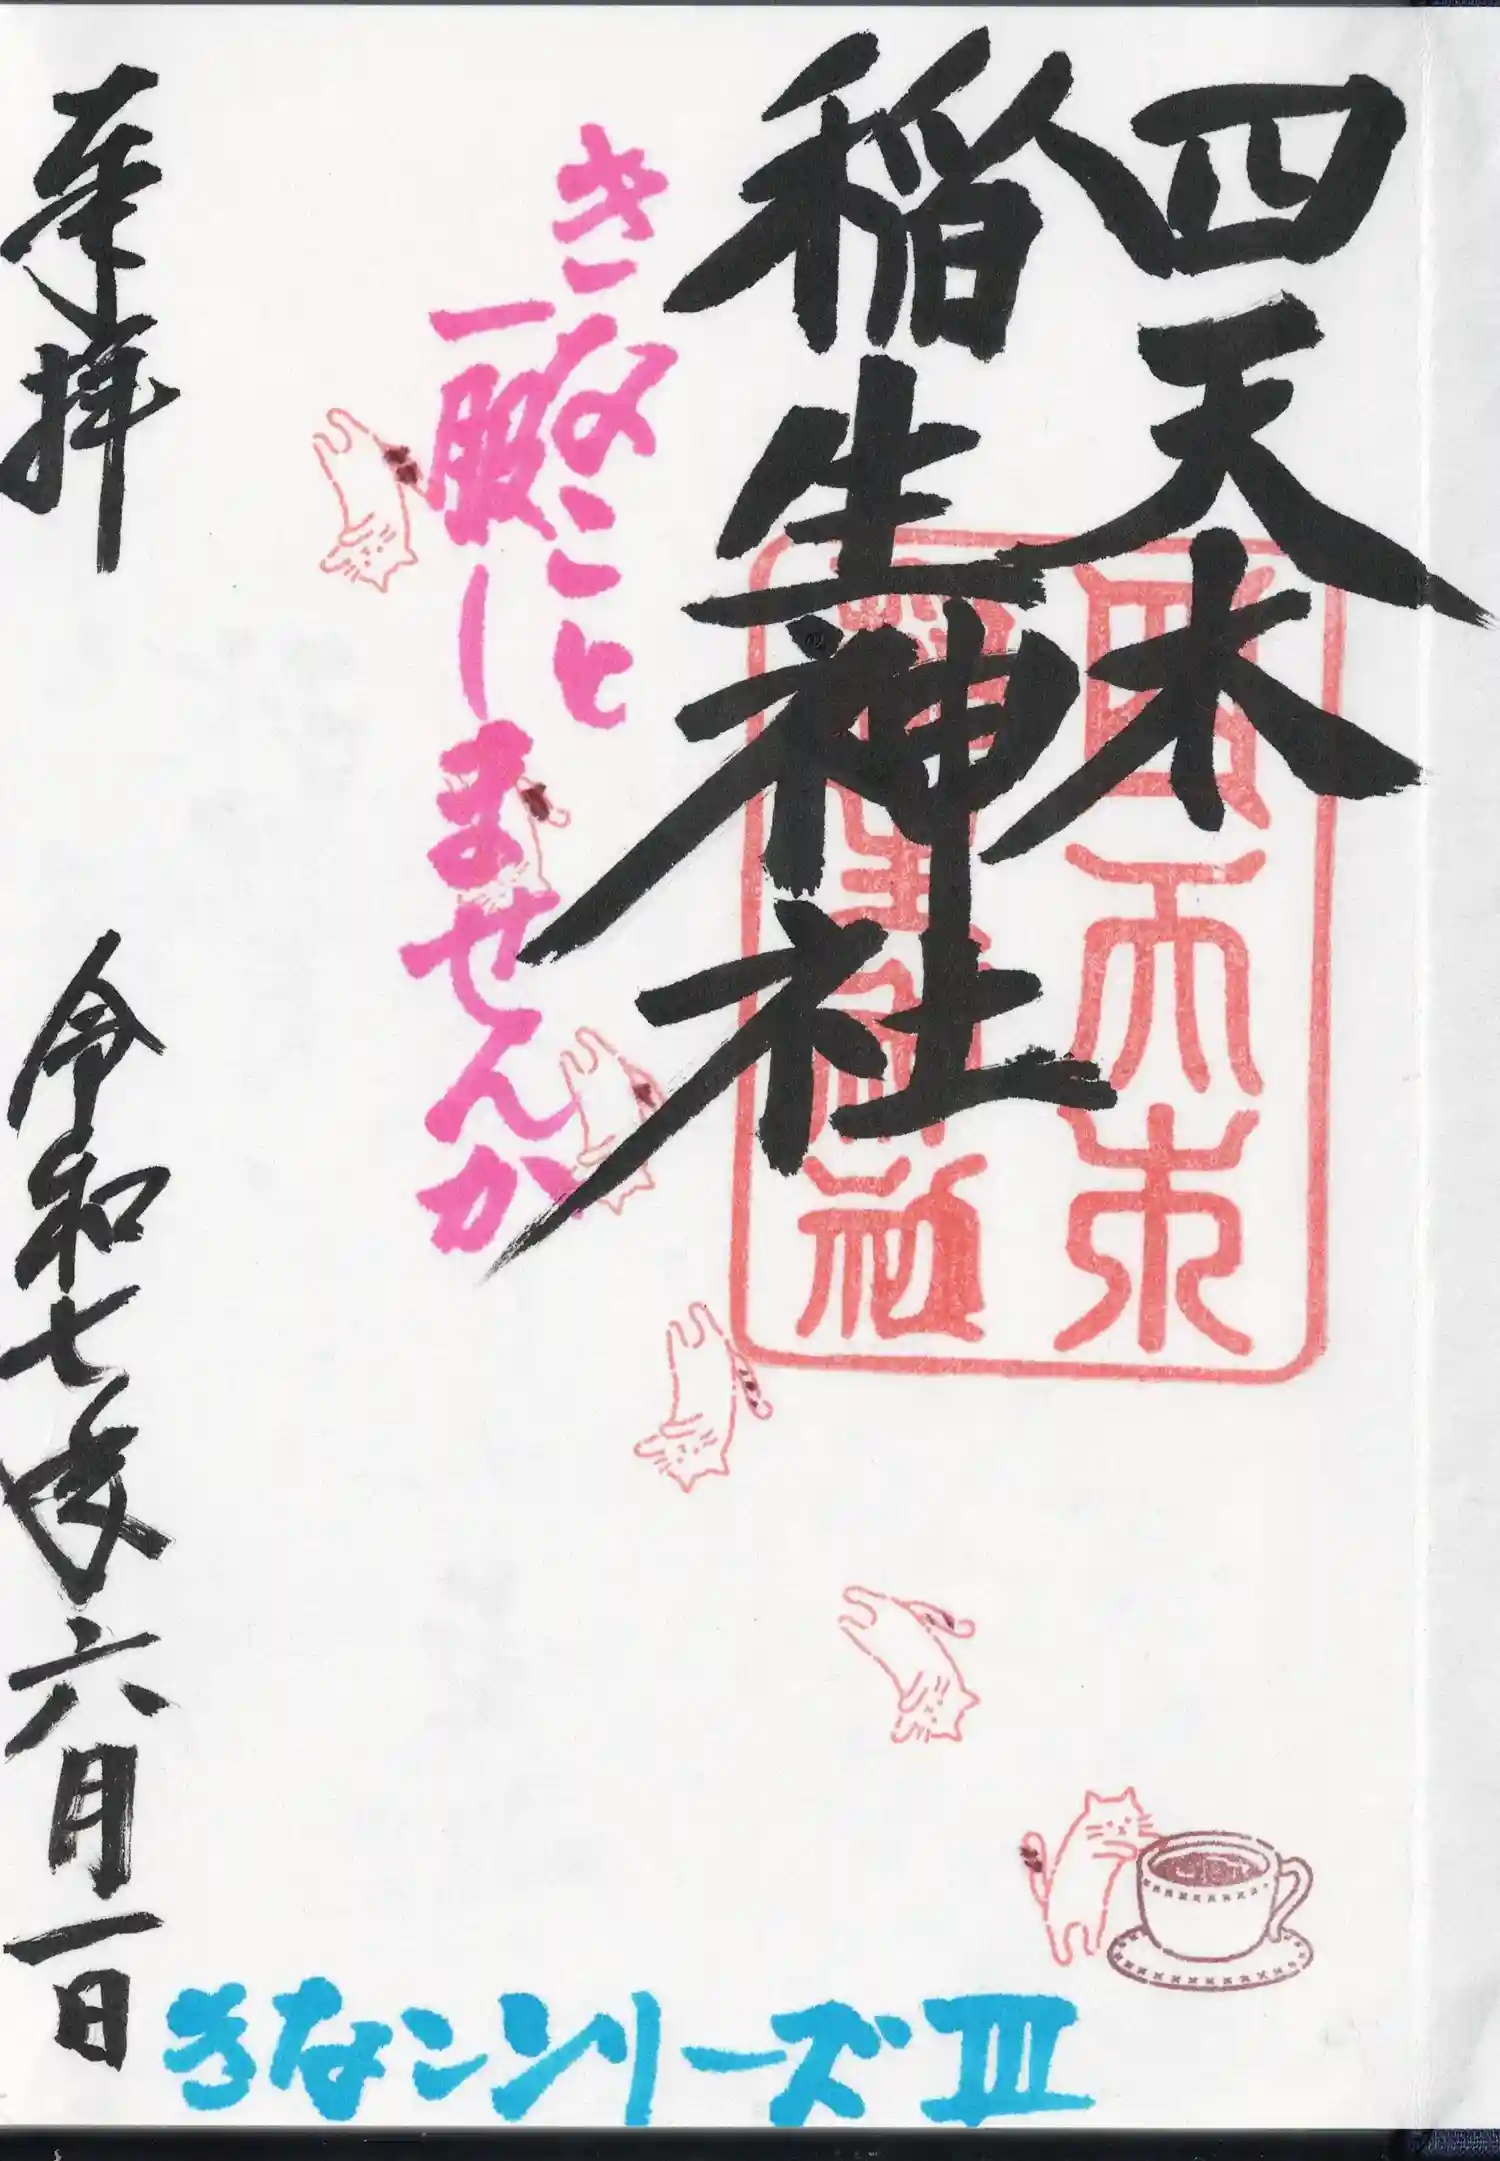 四天木
稲生神社
きなこと
一服しませんか
奉拝
令和七年六月一日
きなこシリーズIII
四天木
稲生神社